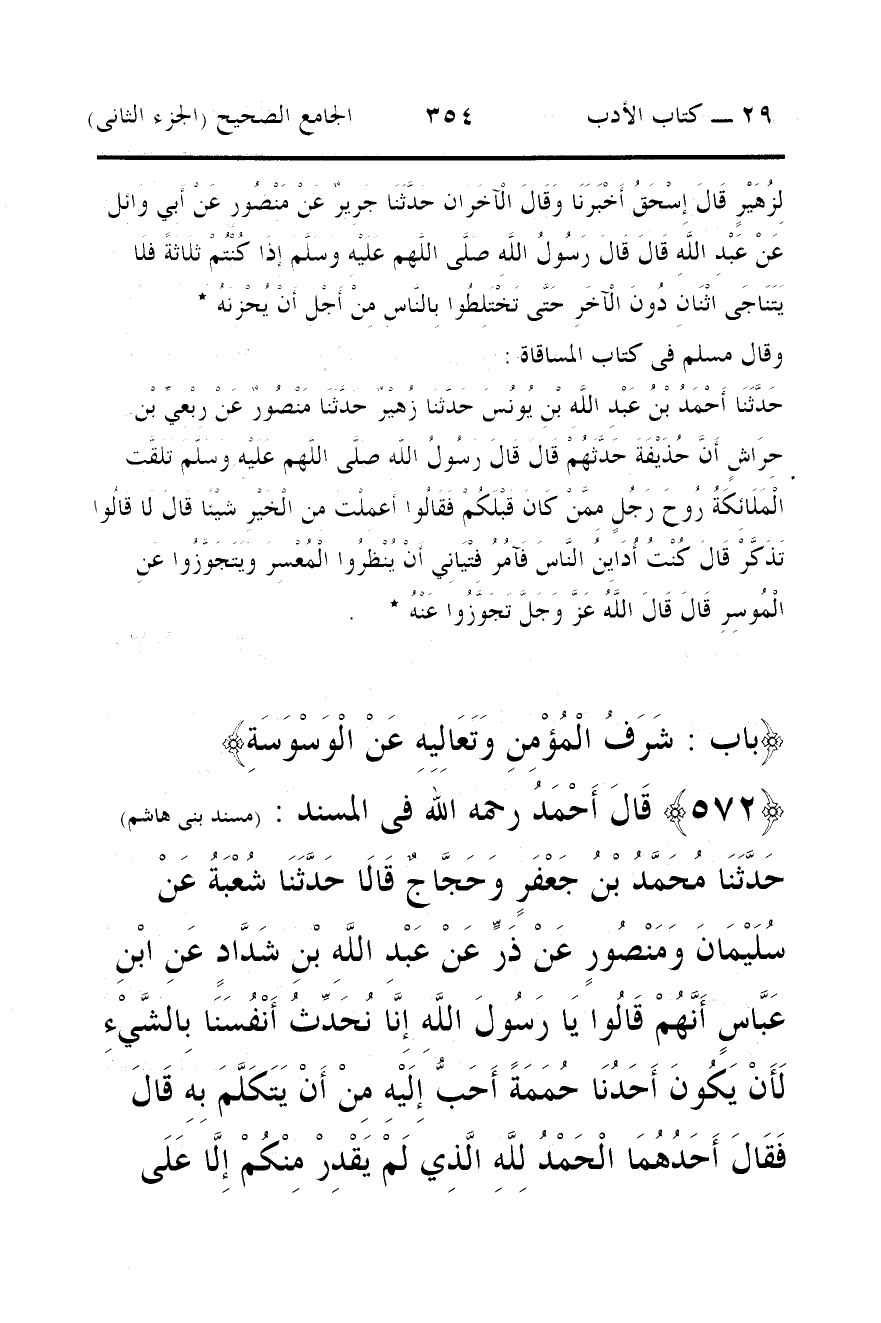 ٢٩ ــ كتاب الأدب ٣٥٤ الجامع الصحيح (الجزء الثانى)
لِزُهَيْرٍ قَالَ إِسْحَقُ أَخْبَرَنَا وَقَالَ الْآخَرَانِ حَدَّثَنَا جَرِيرٌ عَنْ مَنْصُورٍ عَنْ أَبِي وَائِلٍ
عَنْ عَبْدِ اللَّهِ قَالَ قَالَ رَسُولُ اللَّهِ صَلَّى اللهم عَلَيْهِ وَسَلَّمَ إِذَا كُنْتُمْ ثَلَاثَةً فَلَا
يَتَنَاجَى اثْنَانِ دُونَ الْآخَرِ حَتَّى تَخْتَلِطُوا بِالنَّاسِ مِنْ أَجْلِ أَنْ يُحْزِنَهُ *
وقال مسلم فى كتاب المساقاة :
حَدَّثَنَا أَحْمَدُ بْنُ عَبْدِ اللَّهِ بْنِ يُونُسَ حَدَّثَنَا زُهَيْرٌ حَدَّثَنَا مَنْصُورٌ عَنْ رِبْعِيِّ بْنِ
حِرَاشٍ أَنَّ حُذَيْفَةَ حَدَّثَهُمْ قَالَ قَالَ رَسُولُ اللَّهِ صَلَّى اللهم عَلَيْهِ وَسَلَّمَ تَلَقَّتِ
الْمَلَائِكَةُ رُوحَ رَجُلٍ مِمَّنْ كَانَ قَبْلَكُمْ فَقَالُوا أَعَمِلْتَ مِنَ الْخَيْرِ شَيْئًا قَالَ لَا قَالُوا
تَذَكَّرْ قَالَ كُنْتُ أُدَايِنُ النَّاسَ فَآمُرُ فِتْيَانِي أَنْ يُنْظِرُوا الْمُعْسِرَ وَيَتَجَوَّزُوا عَنِ
الْمُوسِرِ قَالَ قَالَ اللَّهُ عَزَّ وَجَلَّ تَجَوَّزُوا عَنْهُ *
﴿باب : شَرَفُ الْمُؤْمِنِ وَتَعَالِيهِ عَنْ الْوَسْوَسَةِ﴾
﴿٥٧٢﴾ قَالَ أَحْمَدُ رحمه الله فى المسند : (مسند بنى هاشم)
حَدَّثَنَا مُحَمَّدُ بْنُ جَعْفَرٍ وَحَجَّاجٌ قَالَا حَدَّثَنَا شُعْبَةُ عَنْ
سُلَيْمَانَ وَمَنْصُورٍ عَنْ ذَرٍّ عَنْ عَبْدِ اللَّهِ بْنِ شَدَّادٍ عَنِ ابْنِ
عَبَّاسٍ أَنَّهُمْ قَالُوا يَا رَسُولَ اللَّهِ إِنَّا نُحَدِّثُ أَنْفُسَنَا بِالشَّيْءِ
لَأَنْ يَكُونَ أَحَدُنَا حُمَمَةً أَحَبُّ إِلَيْهِ مِنْ أَنْ يَتَكَلَّمَ بِهِ قَالَ
فَقَالَ أَحَدُهُمَا الْحَمْدُ لِلَّهِ الَّذِي لَمْ يَقْدِرْ مِنْكُمْ إِلَّا عَلَى